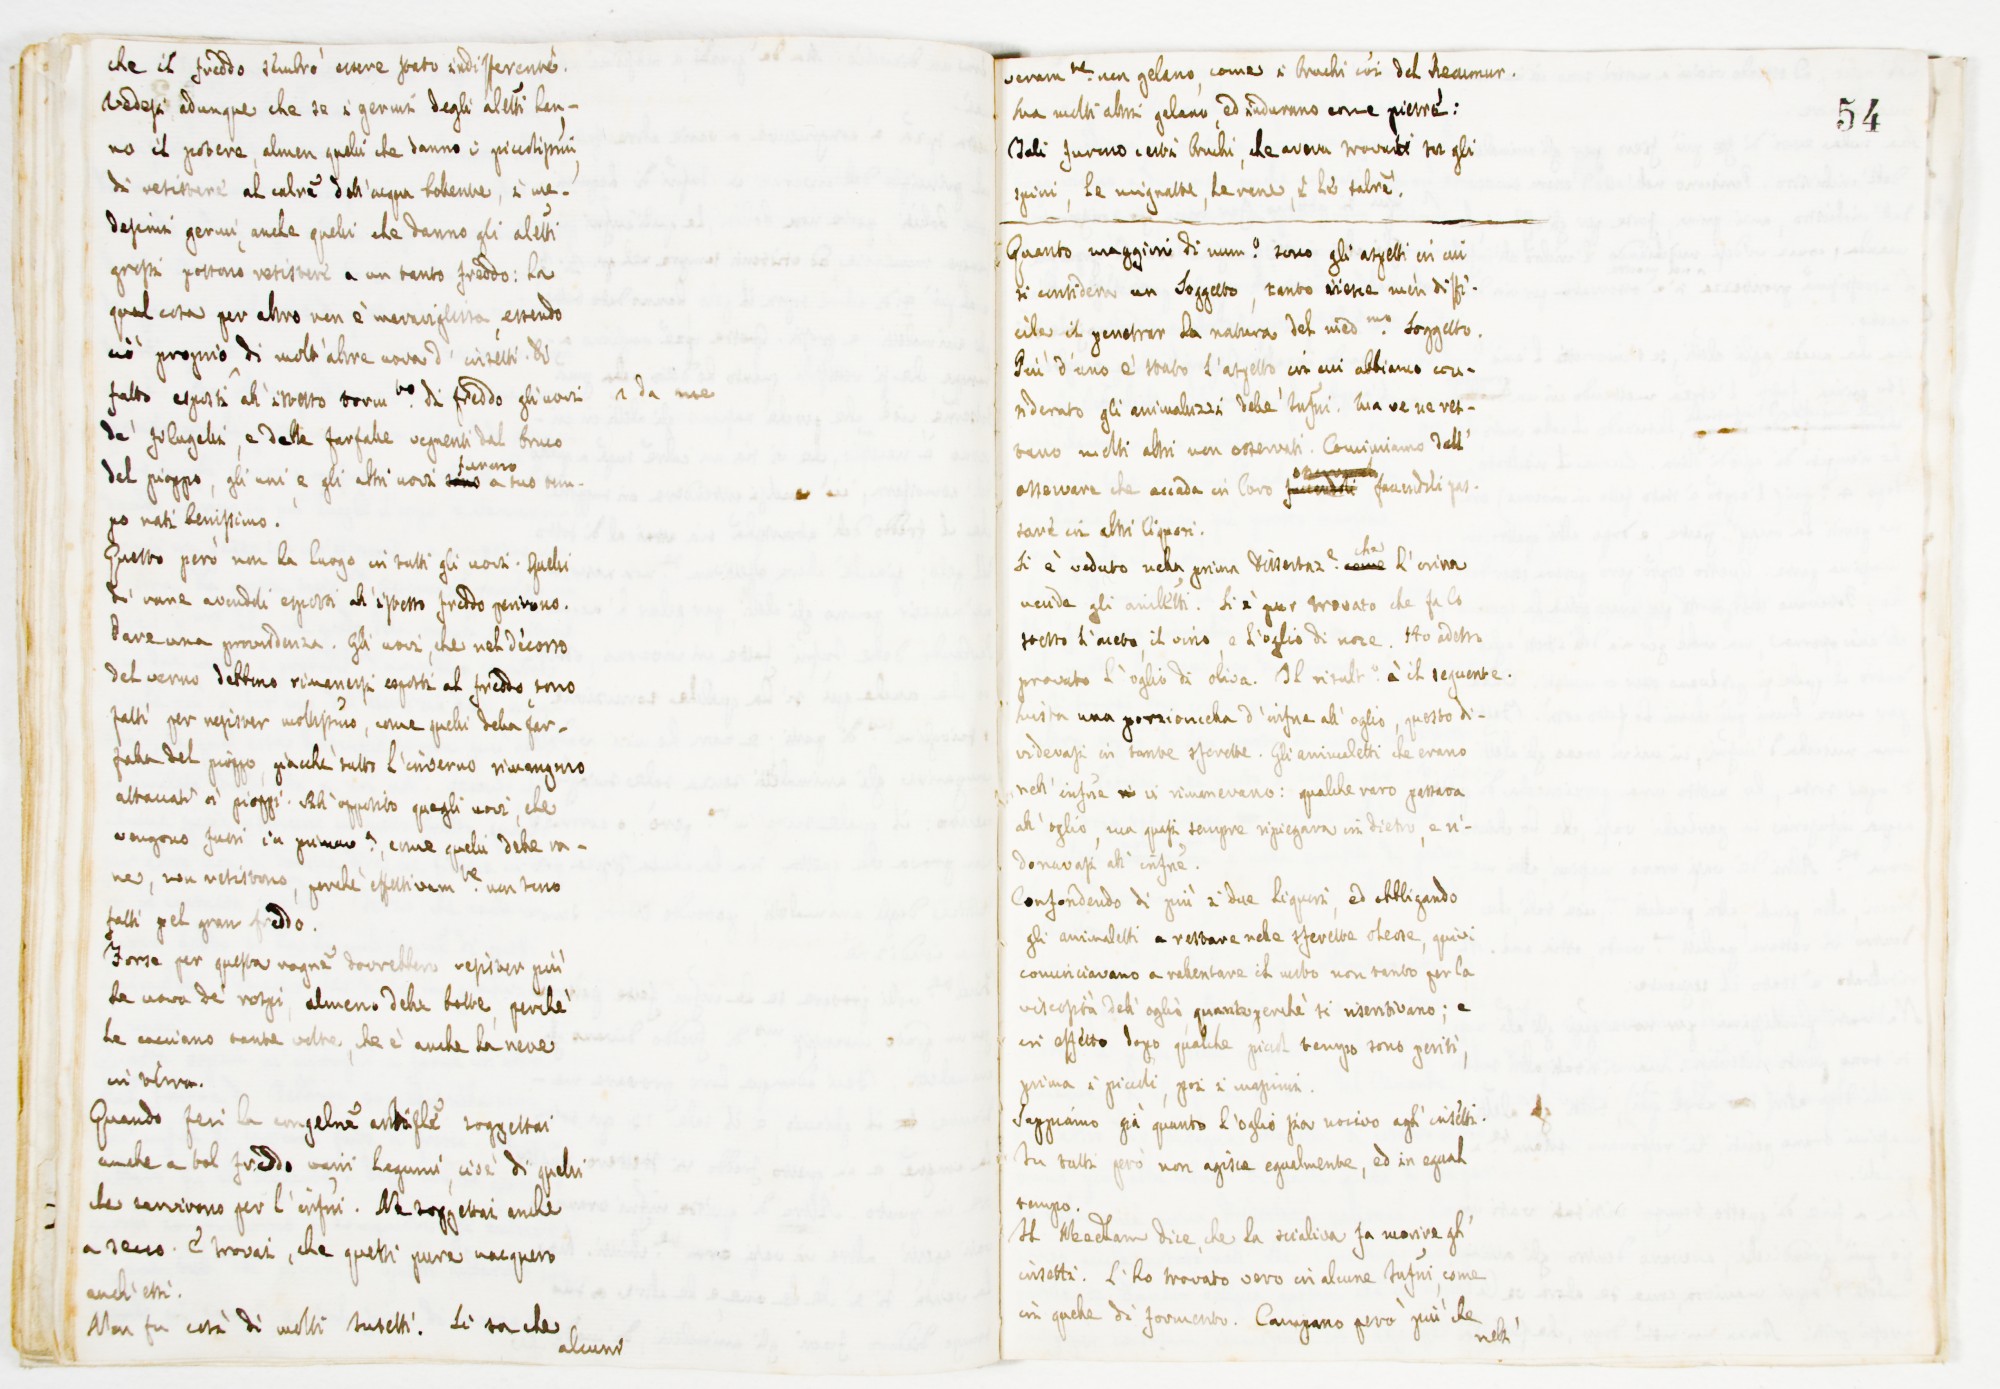 che il freddo sembrò essere stato indifferente.
Vedesi adunque che se i germi degli aletti han-
no il potere, almen quelli che danno i piccolissimi,
di resistere al calre dell'acqua bollente, i me-
desimi germi, anche quelli che danno gli aletti
grossi possono resistere a un tanto freddo: La
qual cosa per altro non è maravigliosa, essendo
ciò proprio di molt'altre uova d'insetti. Di
fatto esposti all'istesso torm.to di freddo gli uovi da me
de' filugelli, e delle farfalle vegnenti dal bruco
del pioppo, gli uni, e gli altri uovi furono a suo tem-
po nati benissimo.
Questo però non ha luogo in tutti gli uovi. Quelli
di rane avendoli esposti all'istesso freddo perirono.
Dare una provvidenza. Gli uovi, che nel decorso
del verno debbono rimanersi esposti al freddo sono
fatti per resister moltissimo, come quelli della far-
falla del pioppo, giacchè tutto l'inverno rimangono
attaccati ai pioppi. All'opposito quegli uovi, che
vengono fuori in primav.a, come quelli delle ra-
ne, non resistono, perchè effettivam.te non sono
fatti pel gran freddo.
Forse per questa ragne dovrebbero resister più
le uova de' rospi, almeno delle botte, perchè
le cacciano tante volte, che è anche la neve
in terra.
Quando feci la congelne artifle soggettai
anche a tal freddo varii legumi, cioè di quelli
che servirono per l'infni. Ne soggettai anche
a secco. E trovai, che questi pure nacquero
anch'essi.
Non fu così di molti Insetti. Si sa che
alcuni
veram.te non gelano, come i bruchi così del Reaumur.
Ma molti altri gelano, ed indurano come pietre:
Tali furono certi bruchi, che aveva trovati su gli
spini, le mignatte, le rane, i
54
Quanto maggiori di num.o sono gli aspetti in cui
si considera un Soggetto, tanto riesce men diffi-
cile il penetrar la natura del med.mo Soggetto.
Più d'uno è stato l'aspetto in cui abbiamo con-
siderato gli animaluzzi delle Infni. Ma ve ne res-
tano molti altri non osservati. Cominciamo dall'
osservare che accada in loro facendoli pas-
sare in altri liquori.
Si è veduto nella prima Dissertaz.e che l'orina
uccide gli aniletti. Si è pur trovato che fa lo
stesso l'aceto, il vino, e l'oglio di noce. Ho adesso
provato l'oglio di oliva. Il risult.o è il seguente.
Mista una porzioncella d'infne all'oglio, questo di-
videvasi in tante sferette. Gli animaletti che erano
nell'infne vi rimanevano: qualche raro passava
all'oglio, ma quasi sempre ripiegava in dietro, e ri-
donavasi all'infne.
Confondendo di più i due liquori, ed obbligando
gli animaletti a restare nelle sferette oleose, quivi
cominciavano a rallentare il moto non tanto per la
viscosità dell'oglio quanto perchè si risentivano; e
in effetto dopo qualche piccol tempo sono periti,
prima i piccoli, poi i massimi.
Sappiamo già quanto l'oglio sia nocivo agl'insetti.
Su tutti però non agisce egualmente, ed in egual
tempo.
Il Needham dice, che la scialiva fa morire gl'
insetti. L'ho trovato vero in alcune Infni, come
in quelle di formento. Campano però più che
nell'